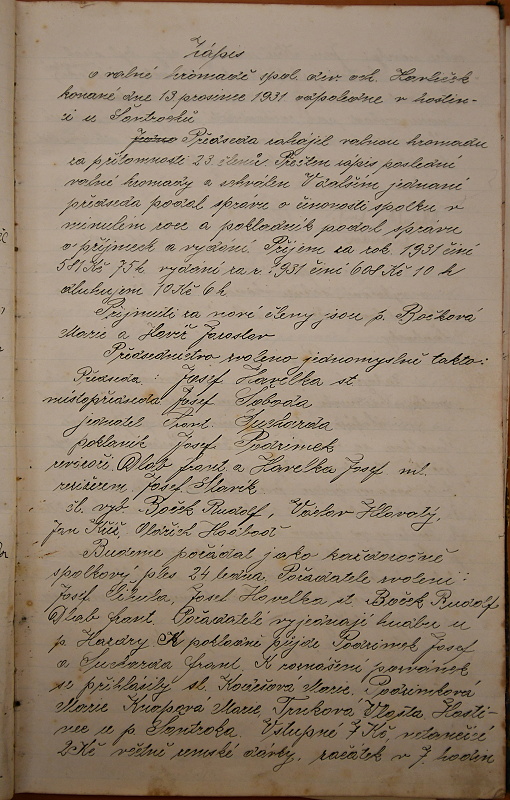 Zápis
o valné hromadě spol. div. och. Havlíček
konané dne 13. prosince 1931 odpoledne v hostin-
ci u Šantrochů
Předseda zahájil valnou hromadu
za přítomnosti 23 členů. Přečten zápis poslední
valné hromady a schválen. V dalším jednaní
předseda podal spravu o činnosti spolku v
minulém roce a pokladník podal spravu
o příjmech a vydání. Příjem za rok 1931 činí
591 Kč 75 h vydání za r. 1931 činí 601 Kč 10 h
dluhujem 10 Kč 6 h
Přijmuti za nové členy jsou p. Bočková
Marie a Havíř Jaroslav
Předsednictvo zvoleno jednomyslně takto:
Předseda: Josef Havelka st.
místopředseda Josef Soboda
jednatel Frant. Sucharda
pokladník Josef Podzimek
revisoři Dlab frant. a Havelka Josef ml.
režisérem Josef Mařík
čl. výb. Boček Rudolf, Václav Hlavatý,
Jan Kříž, Oldřich
Budeme pořádat jako každoročně
spolkový ples 24 ledna. Pořadatele zvoleni:
Josef Josef Havelka st. Boček Rudolf
Dlab frant. Pořadatelé vyjednají hudbu u
p. Hazdry. K pokladni půjde Podzimek Josef
a Sucharda frant. K roznášení pozvánek
se přihlásily sl. Marie, Podzimková
Marie Knapová Marie, Trnková Vlasta, Hosti-
nec u p. Šantrocha. Vstupné 7 Kč, netančící
2 Kč včetně zemské dávky, začátek v 7 hodin